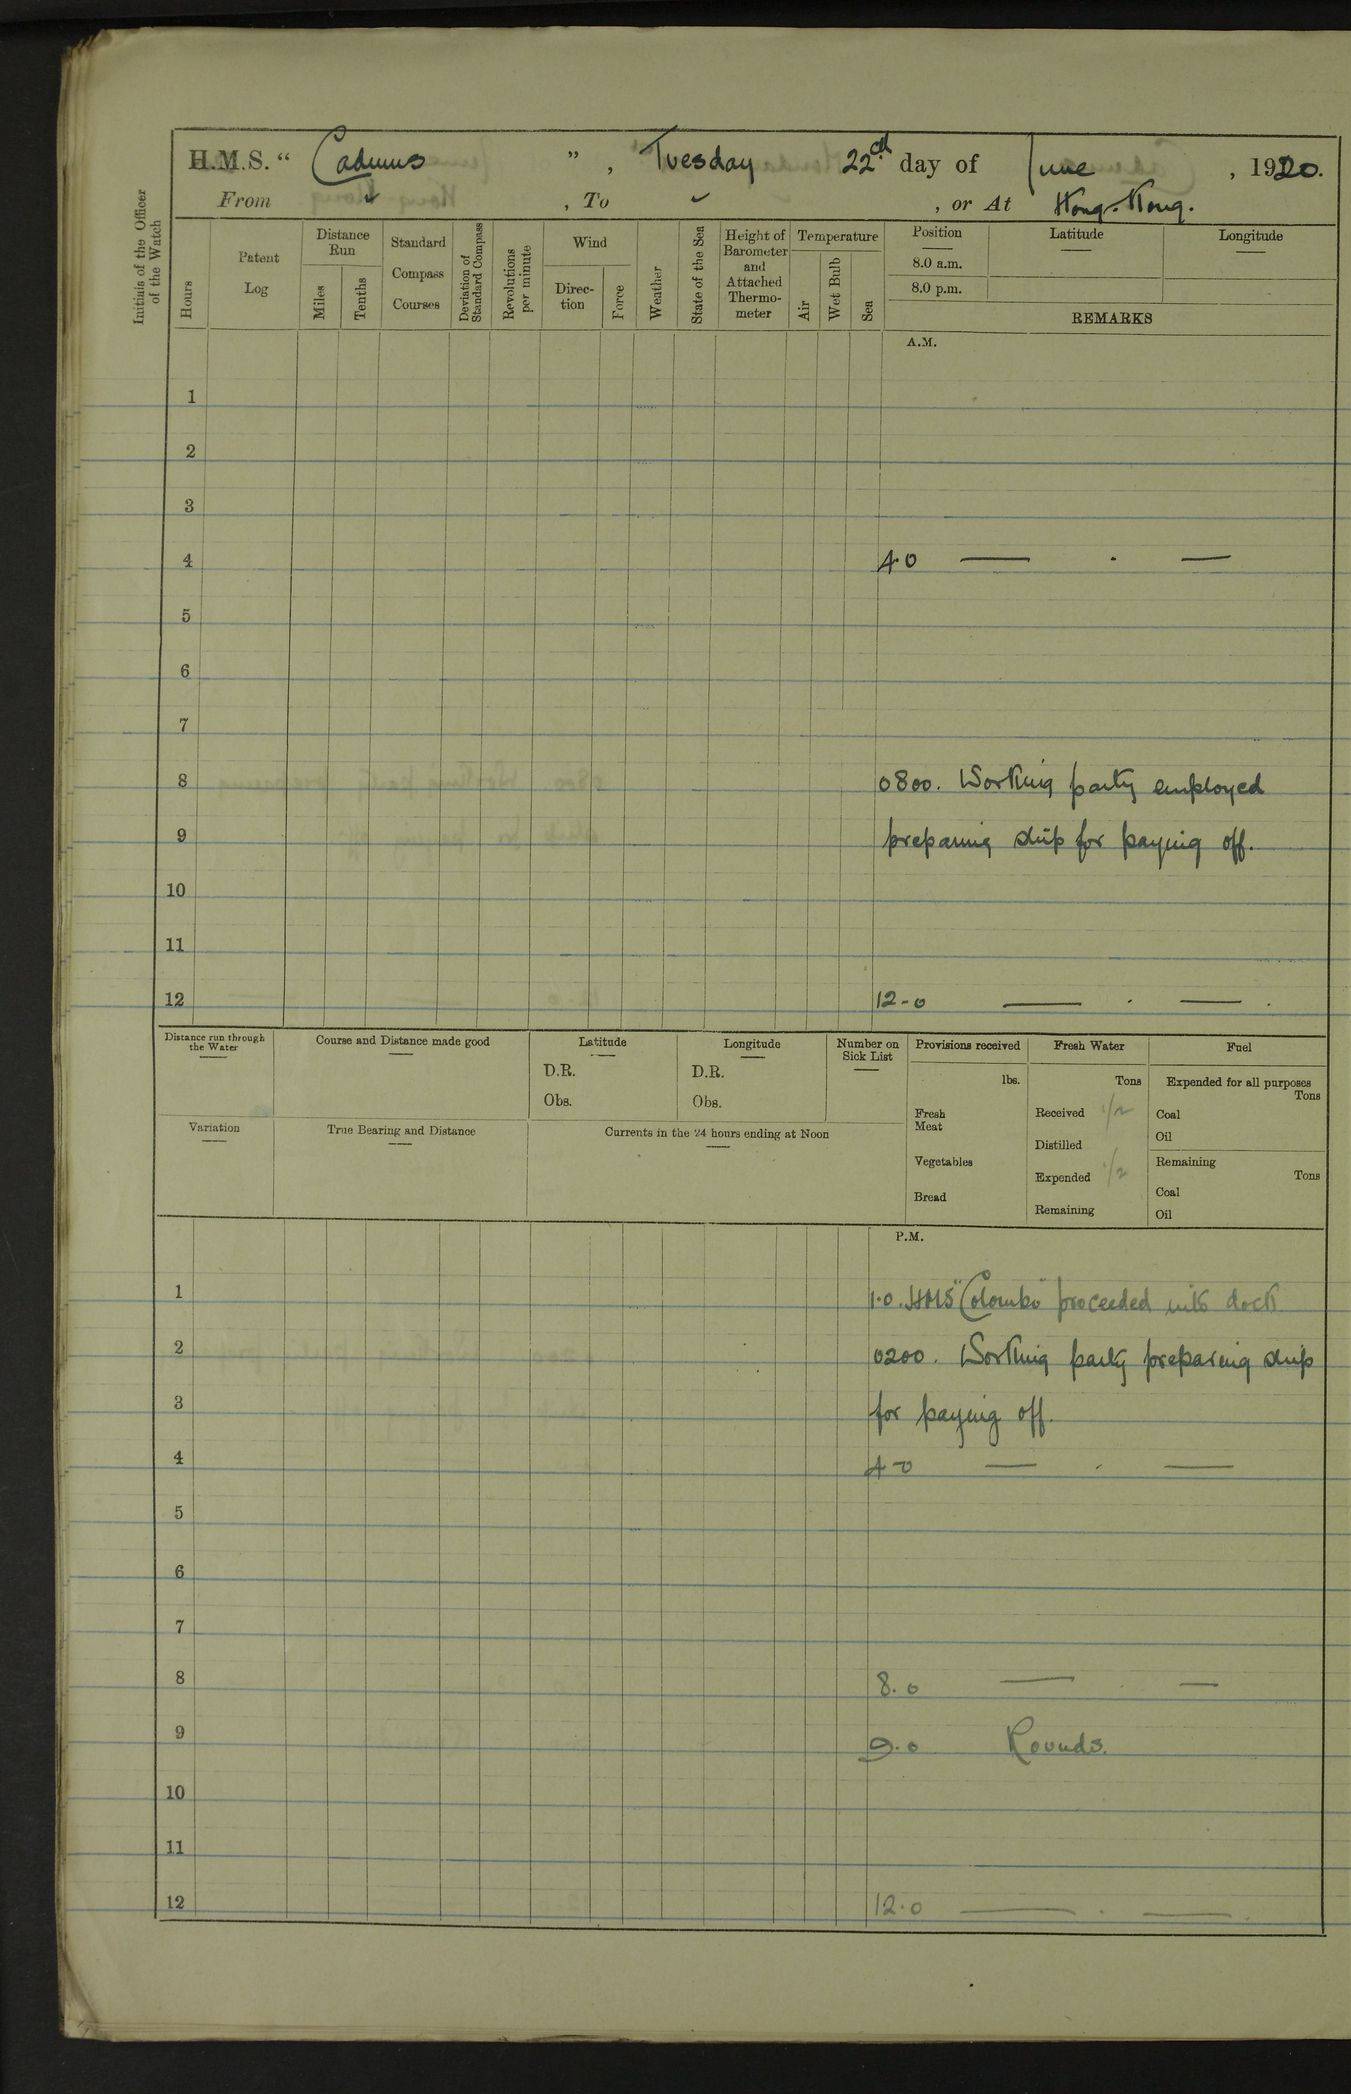 H.M.S. “ Cadmus ” , Tuesday 22nd day of June , 1920.
From ✓ , To ✓ , or At Hong-Kong.
Initials of the Officer of the Watch
Hours
Patent Log
Distance Run
Miles
Tenths
Standard Compass Courses
Deviation of Standard Compass
Revolutions per minute
Wind
Direction
Force
Weather
State of the Sea
Height of Barometer and Attached Thermometer
Temperature
Air
Wet Bulb
Sea
Position Latitude Longitude
8.0 a.m.
8.0 p.m.
REMARKS
A.M.
1
2
3
4 4.0 — . —
5
6
7
8 0800. Working party employed
9 preparing ship for paying off.
10
11
12 12-0 — . — .
Distance run through the Water
Course and Distance made good
Latitude
D.R.
Obs.
Longitude
D.R.
Obs.
Number on Sick List
Provisions received
lbs.
Fresh Meat
Vegetables
Bread
Fresh Water
Tons
Received 1/2
Distilled
Expended 1/2
Remaining
Fuel
Expended for all purposes
Tons
Coal
Oil
Remaining
Tons
Coal
Oil
Variation
True Bearing and Distance
Currents in the 24 hours ending at Noon
P.M.
1 1.0. HMS "Colombo" proceeded into dock
2 0200. Working party preparing ship
3 for paying off.
4 4-0 — . —
5
6
7
8 8.0 — —
9 9.0 Rounds.
10
11
12 12.0 — . — .